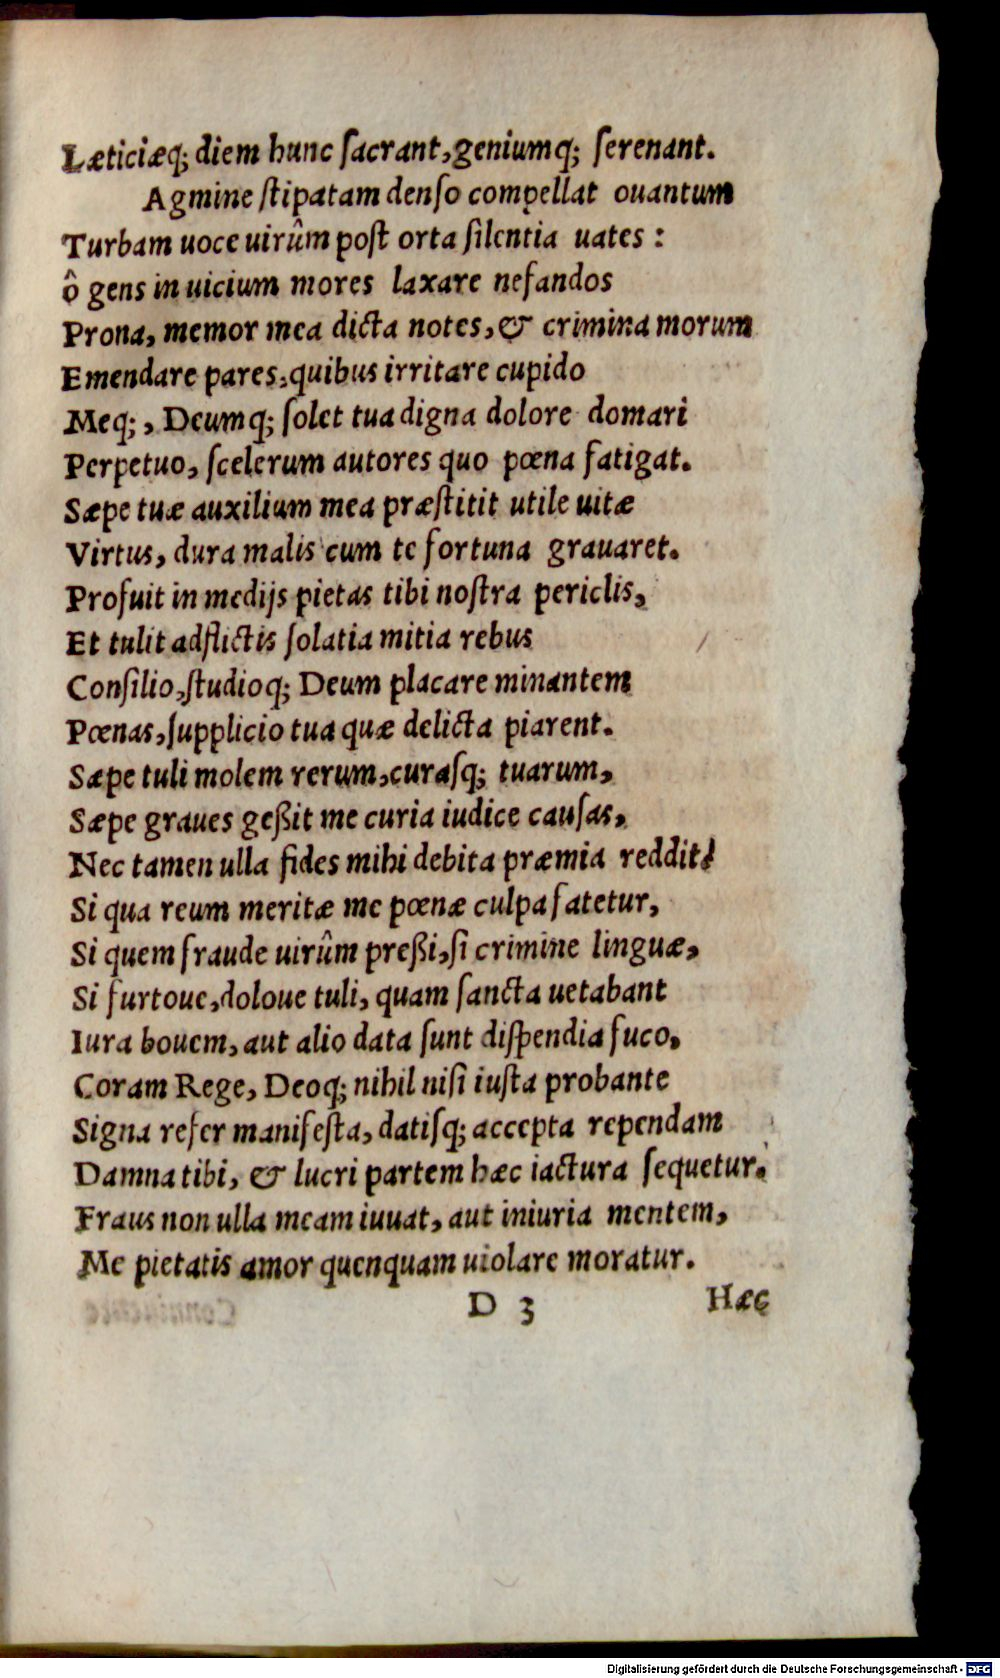 Læticiæq; diem hunc ſacrant, geniumq; ſerenant.
Agmine ſtipatam denſo compellat ouantum
Turbam uoce uirûm poſt orta ſilentia uates:
ô gens in uicium mores laxare nefandos
Prona, memor mea dicta notes, & crimina morum
Emendare pares, quibus irritare cupido
Meq;, Deumq; ſolet tua digna dolore domari
Perpetuo, ſcelerum autores quo pœna fatigat.
Sæpe tuæ auxilium mea præſtitit utile uitæ
Virtus, dura malis cum te fortuna grauaret.
Profuit in medijs pietas tibi noſtra periclis,
Et tulit adflictis ſolatia mitia rebus
Conſilio, ſtudioq; Deum placare minantem
Pœnas, ſupplicio tua quæ delicta piarent.
Sæpe tuli molem rerum, curaſq; tuarum,
Sæpe graues geßit me curia iudice cauſas,
Nec tamen ulla fides mihi debita præmia reddit!
Si qua reum meritæ me pœnæ culpa fatetur,
Si quem fraude uirûm preßi, ſi crimine linguæ,
Si furtoue, doloue tuli, quam ſancta uetabant
Iura bouem, aut alio data ſunt diſpendia fuco,
Coram Rege, Deoq; nihil niſi iuſta probante
Signa refer manifeſta, datiſq; accepta rependam
Damna tibi, & lucri partem hæc iactura ſequetur.
Fraus non ulla meam iuuat, aut iniuria mentem,
Me pietatis amor quenquam uiolare moratur.
D 3 Hæc
Digitalisierung gefördert durch die Deutsche Forschungsgemeinschaft - DFG